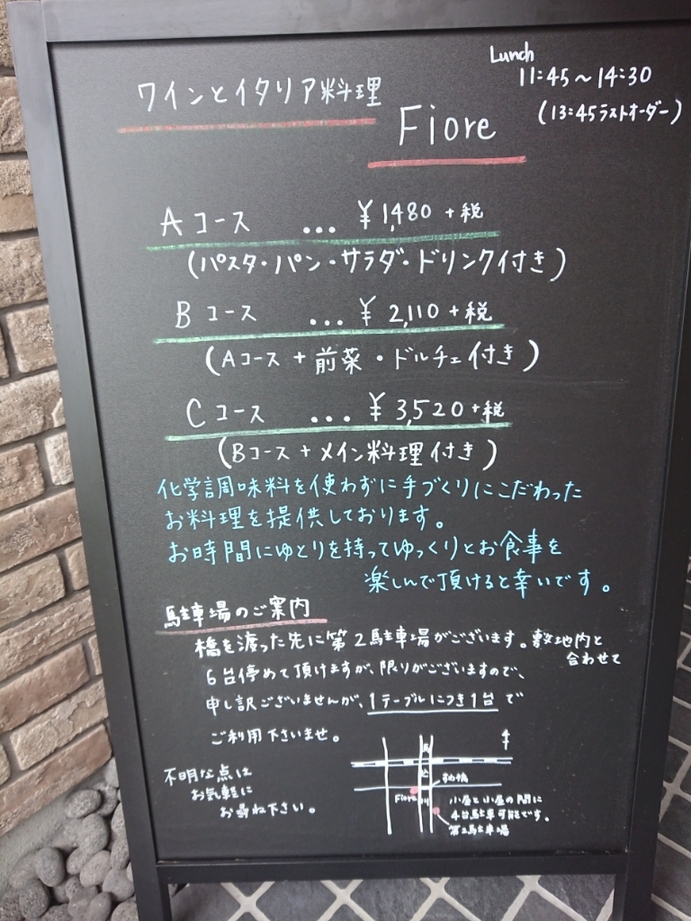 Lunch
11:45～14:30
(13:45ラストオーダー)
ワインとイタリア料理
Fiore
Aコース ... ¥1,480+税
(パスタ・パン・サラダ・ドリンク付き)
Bコース ... ¥2,110+税
(Aコース+前菜・ドルチェ付き)
Cコース ... ¥3,520+税
(Bコース+メイン料理付き)
化学調味料を使わずに手づくりにこだわった
お料理を提供しております。
お時間にゆとりを持ってゆっくりとお食事を
楽しんで頂けると幸いです。
駐車場のご案内
橋を渡った先に第2駐車場がございます。敷地内と
合わせて
6台停めて頂けますが、限りがございますので、
申し訳ございませんが、1テーブルにつき1台で
ご利用下さいませ。
不明な点は
お気軽に
お尋ね下さい。
Fiore
川
小屋と小屋の間に
4台駐車可能です。
第2駐車場